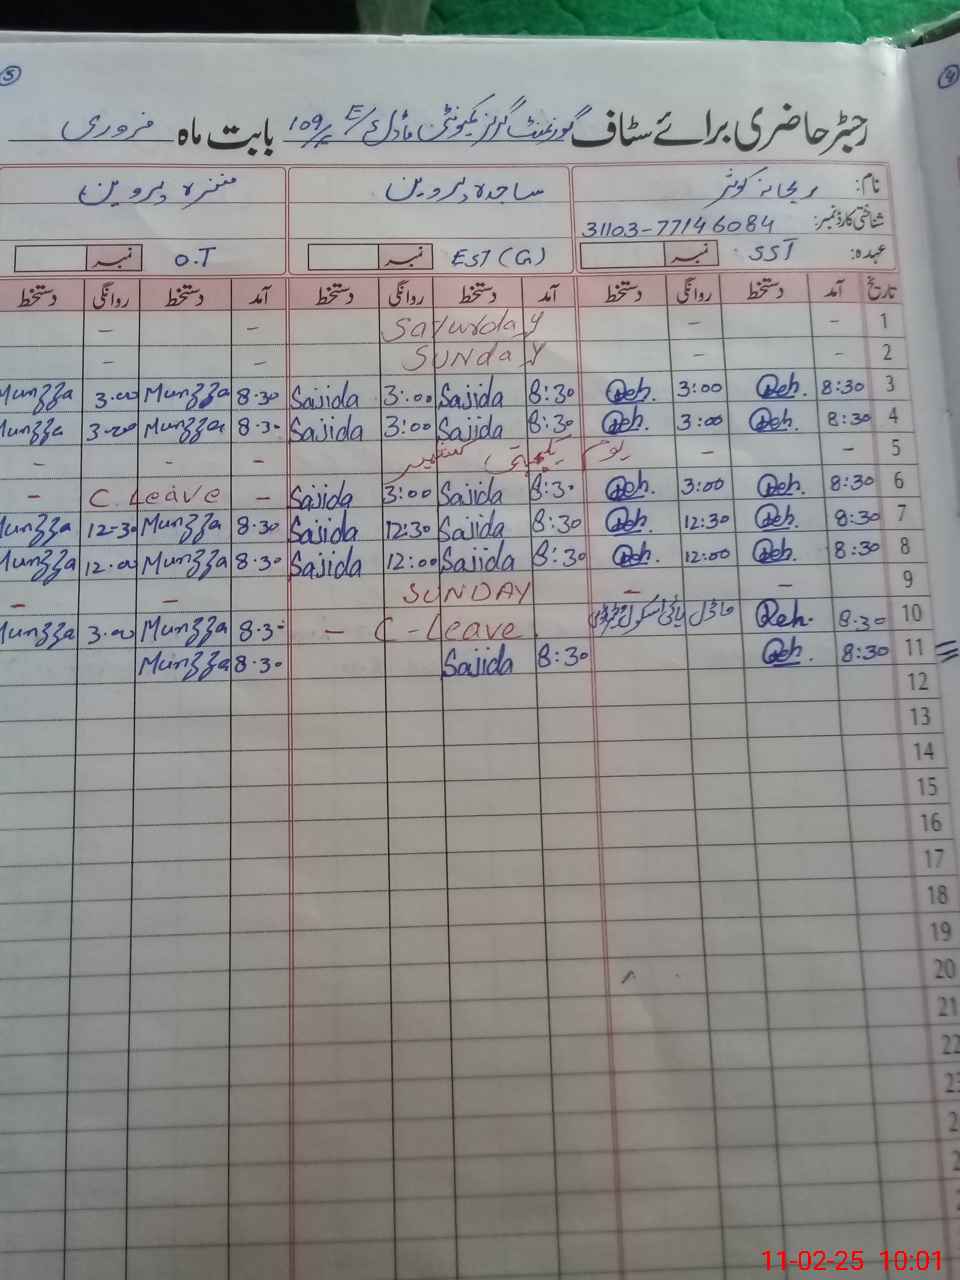 5
4
رجسٹر حاضری برائے سٹاف گورنمنٹ گرلز کمیونٹی ماڈل 109/E بابت ماہ فروری
نام: ریحانہ کوثر ساجدہ پروین منزہ پروین
شناختی کارڈ نمبر: 31103-77146084
عہدہ: SST نمبر EST (G) نمبر O.T نمبر
تاریخ آمد دستخط روانگی دستخط آمد دستخط روانگی دستخط آمد دستخط روانگی دستخط
1 - - Saturday - -
2 - - SUNdaY - -
3 8:30 Reh. 3:00 Reh. 8:30 Sajida 3:00 Sajida 8.30 Munzza 3.00 Munzza
4 8:30 Reh. 3:00 Reh. 8:30 Sajida 3:00 Sajida 8.30 Munzza 3.00 Munzza
5 - - یوم یکجہتی کشمیر - - -
6 8:30 Reh. 3:00 Reh. 8:30 Sajida 3:00 Sajida - C.Leave -
7 8:30 Reh. 12:30 Reh. 8:30 Sajida 12:30 Sajida 8.30 Munzza 12.30 Munzza
8 8:30 Reh. 12:00 Reh. 8:30 Sajida 12:00 Sajida 8.30 Munzza 12.00 Munzza
9 - - SUNDAY - -
10 8:30 Reh. ماڈل ہائی سکول - C-Leave 8.30 Munzza 3.00 Munzza
11 8:30 Reh. 8:30 Sajida 8.30 Munzza
12
13
14
15
16
17
18
19
20
21
22
23
11-02-25 10:01